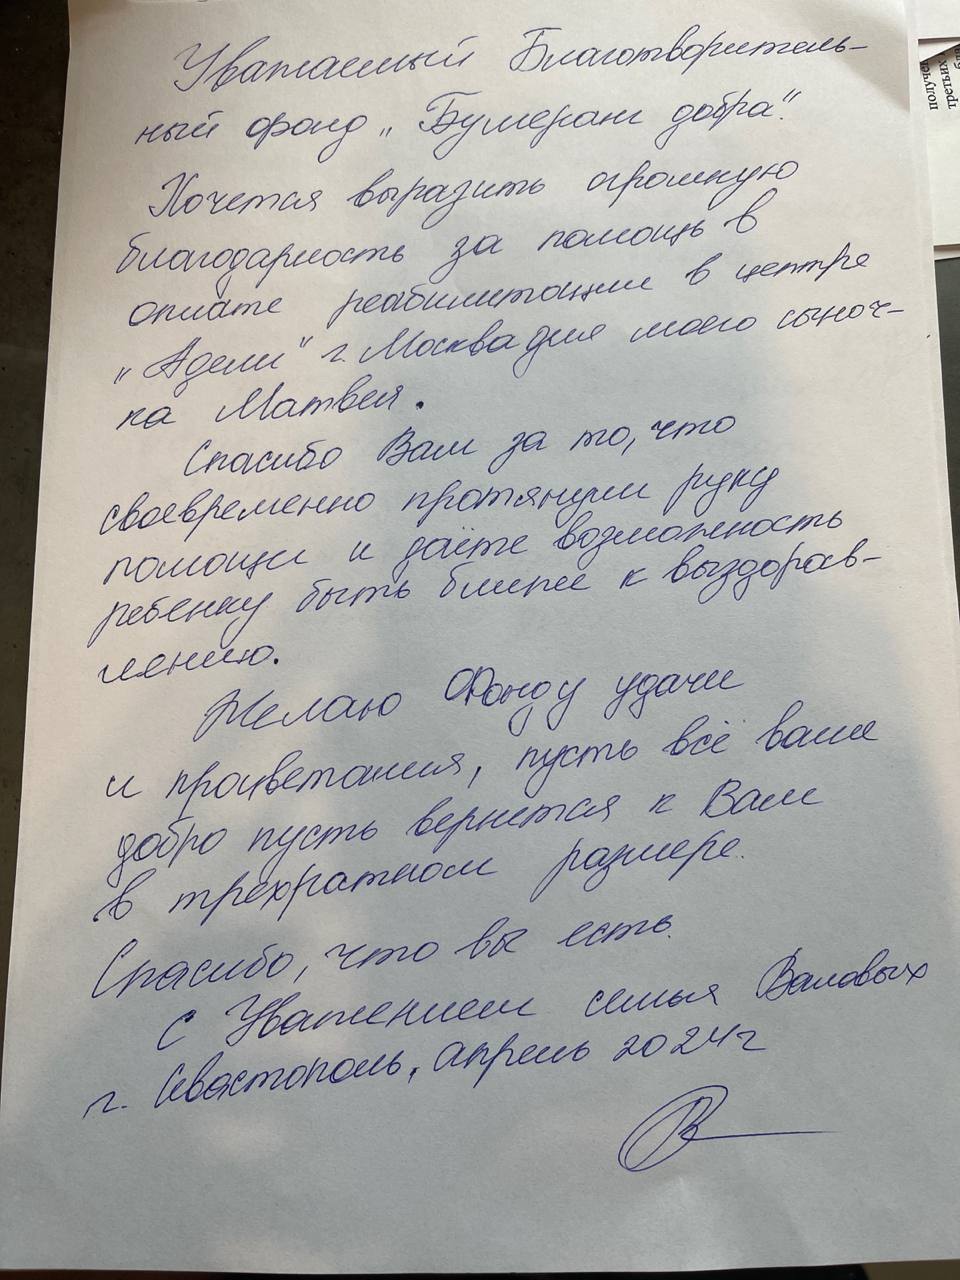 Уважаемый Благотворитель-
ный фонд „Бумеранг добра".
Хочется выразить огромную
благодарность за помощь в
оплате реабилитации в центре
„Адели" г. Москва для моего сыноч-
ка Матвея.
Спасибо Вам за то, что
своевременно протянули руку
помощи и даёте возможность
ребенку быть ближе к выздорав-
лению.
Желаю Фонду удачи
и процветания, пусть всё ваше
добро пусть вернется к Вам
в трехкратном размере.
Спасибо, что вы есть.
С Уважением семья Валовых
г. Севастополь, апрель 2024г
получе
третьих